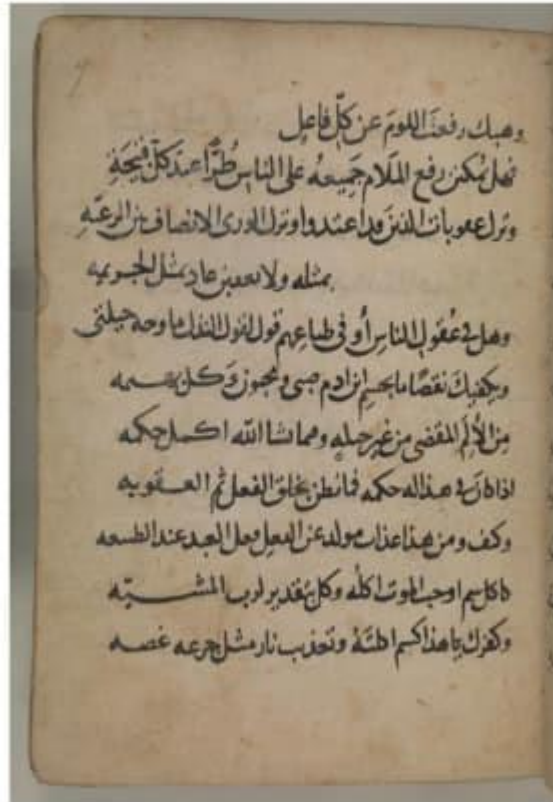 وهبك رفعت اللومَ عن كلّ فاعِل
فهل يمكنن رفع المَلَام جَمِيعهُ على الناسِ طُرًّا عندَ كلّ قبيحَةِ
وترك عقوبات الذين قد اعتدوا وترك الورى الانصاف بين الرعيّه
بمثله ولا يعقبن عاد بمثل الجريمه
وهل في عُقولِ الناسِ أو في طباعِهم قبول لقول النذل ما وجه حيلتي
ويكفيكَ نقصًا ما بجسمِ ابن ادم صبى ومجنون وَكل بهيمه
مِن الأَلَم المقضى مِن غير حيله وفيما يشا الله اكمل حكمه
اذا كانَ في هذا له حكمه فما يظن بخلق الفعل ثم العقوبه
وكيف ومن هذا عذاب مولد عن الفعل فعل العبد عند الطبيعه
كاكل سم اوجب الموت اكله وكل بتقدير لرب المشيّه
وكفرك يا هذا كسم اكلتهُ وتعذيب نار مثل جرعه غصه